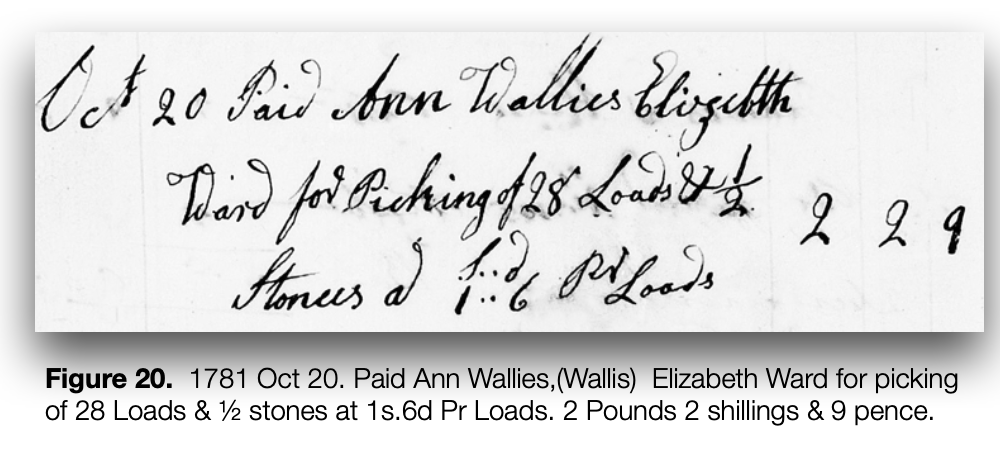 Oct 20 Paid Ann Wallies Elizebth
Ward for Picking of 28 Loads & 1/2 2 2 9
Stonees a s..d 1..6 Pr Loads
Figure 20. 1781 Oct 20. Paid Ann Wallies,(Wallis) Elizabeth Ward for picking
of 28 Loads & ½ stones at 1s.6d Pr Loads. 2 Pounds 2 shillings & 9 pence.